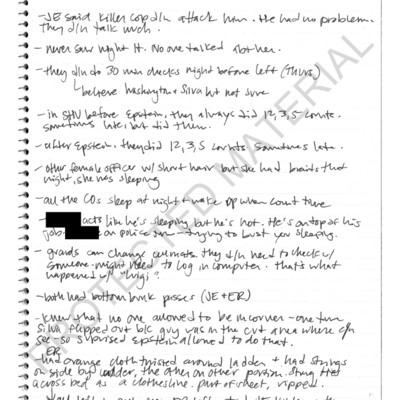 -JE said killer cop d/n attack him. He had no problem.
They d/n talk much.
- never saw night Lt. No one talked abt her.
- they d/n do 30 min checks night before left (Thurs)
believe Washington + Silva but not sure
- in SHU before Epstein, they always did 12, 3, 5 counts.
sometimes late, but did them.
- after Epstein, they did 12, 3, 5 counts sometimes late
- other female officer w/ short hair but she had braids that
night, she was sleeping
- all the COs sleep at night + wake up when count there
- acts like he's sleeping but he's not. He's on top of his
job- on police trying to bust you sleeping.
- guards can change cellmate. They d/n need to check w/
someone. might need to log in computer. that's what
happened w/ "Luigi"?
- both had bottom bunk passes (JE + ER)
- knew that no one allowed to be in corner - one time
Silva flipped out b/c guy was in the cut area where c/n
see - so surprised Epstein allowed to do that.
ER
- had orange cloth twisted around ladder + had strings
on side by ladder, the other on other portion. string that
across bed as a clothesline. part of sheet, ripped.
PROTECTED MATERIAL